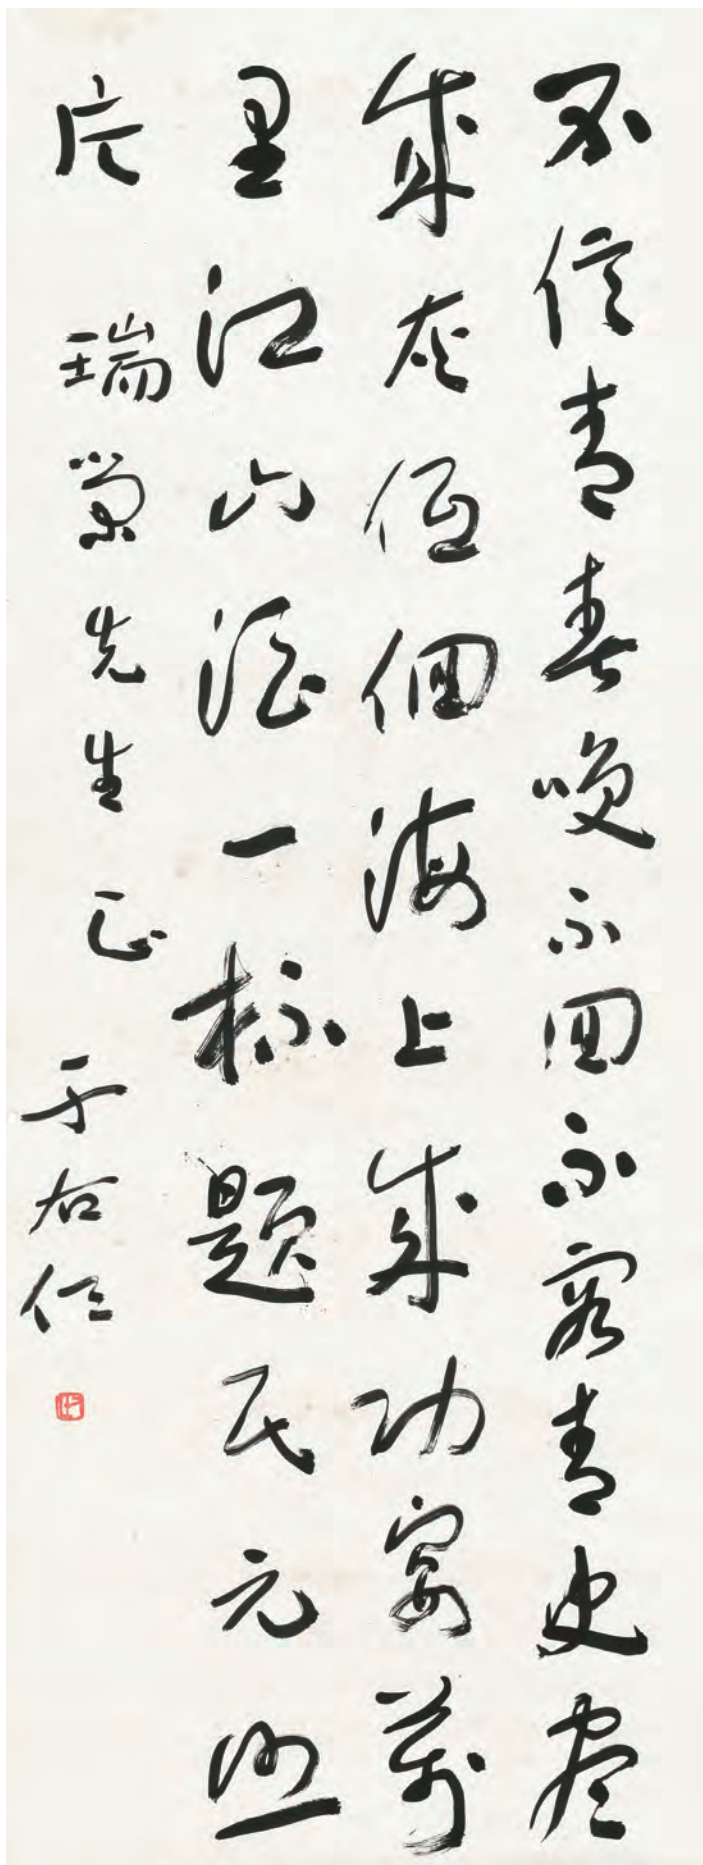 不信青春喚不回不容青史盡
成灰低佪海上成功宴萬
里江山酒一杯題民元照
片 瑞 先生正 于右任